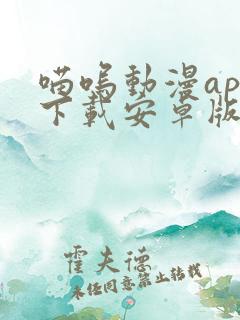 喵呜動漫ap
下載安卓版
霍夫德
未经同意禁止转载